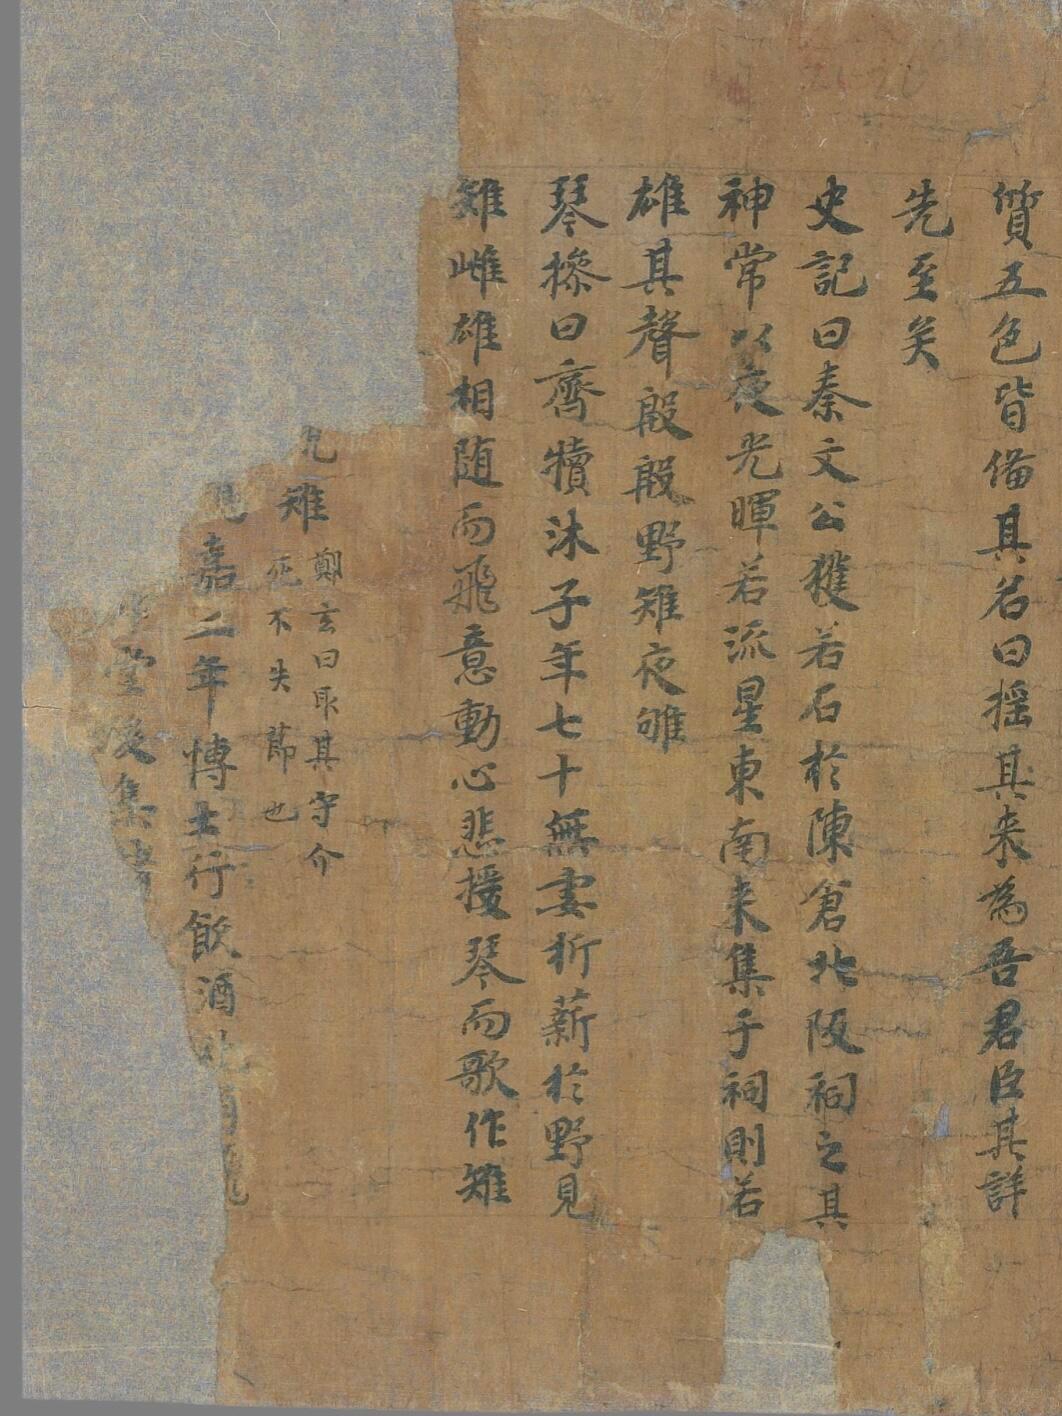 質五色皆備其名曰摇其来為吾君臣其詳
先至矣
史記曰秦文公獲若石於陳倉北阪祠之其
神常以夜光暉若流星東南来集于祠則若
雄其聲殷殷野雉夜雊
琴操曰齊犢沐子年七十無妻析薪於野見
雉雌雄相随而飛意動心悲援琴而歌作雉
雉
鄭玄曰取其守介
死不失節也
嘉二年博士行飲酒
堂後集